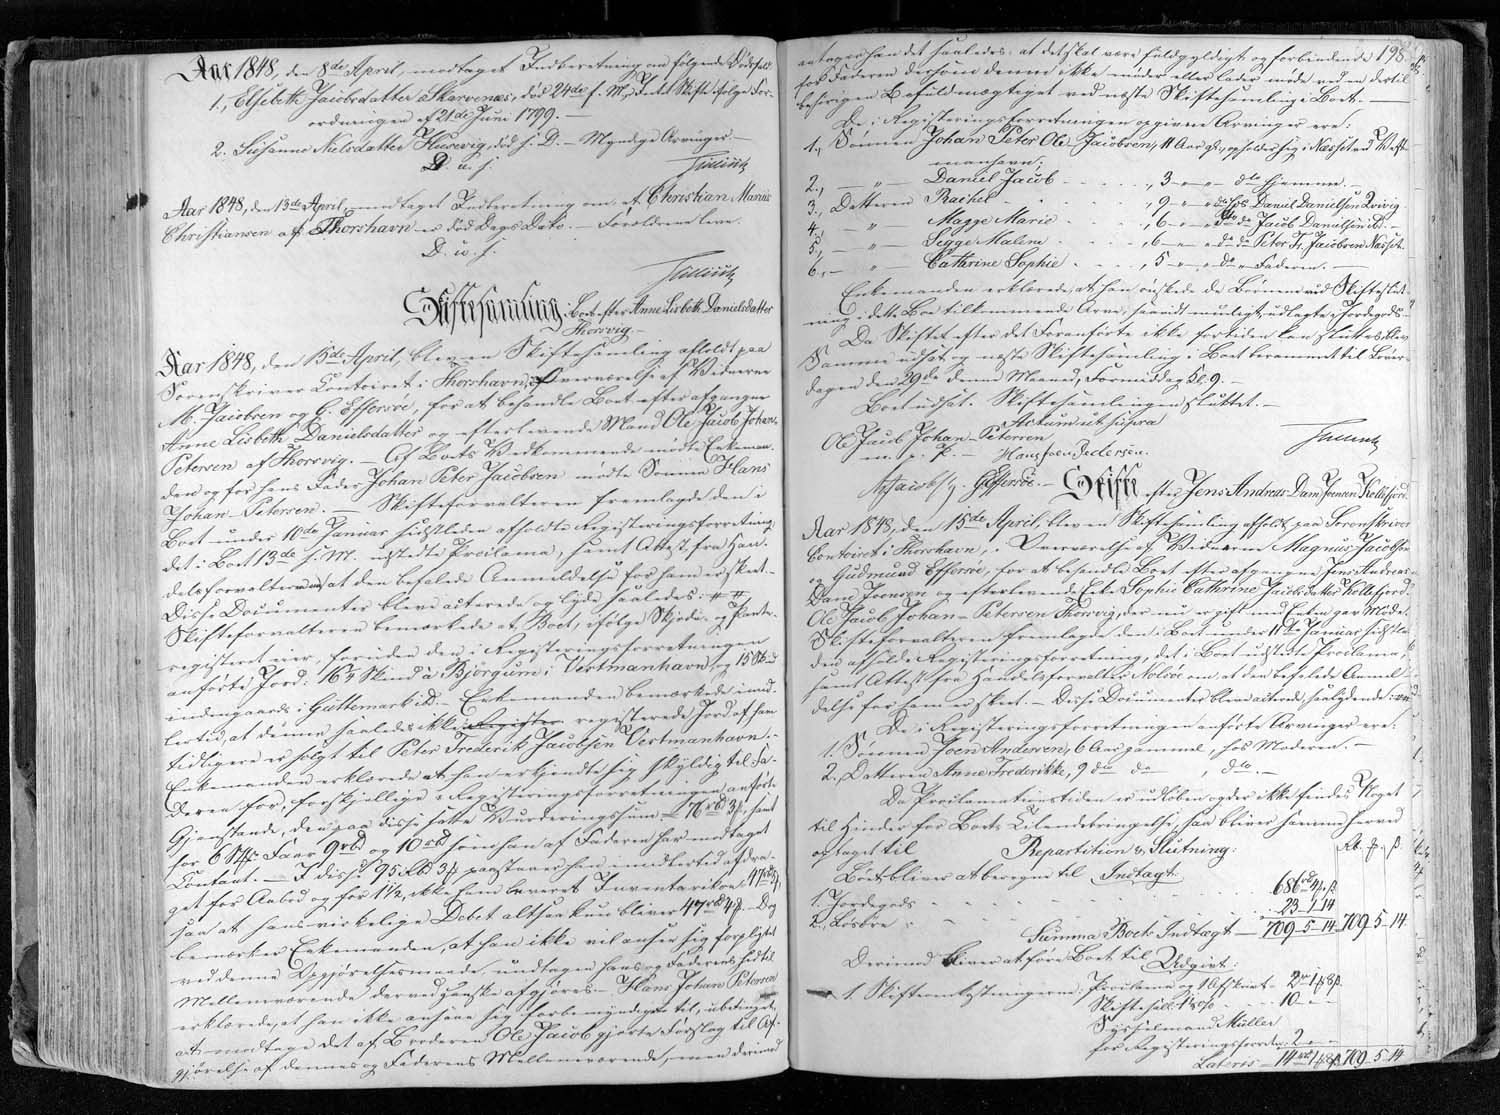 Aar 1848, den 8de April, modtaget Indberetning om følgende Dødsfald:
1, Elsebeth Jacobsdatter Skarvenæs, død 24de f. M., Intet Skifte ifølge For-
ordningen af 21de Juni 1799. —
2. Susanne Nielsdatter Husevig, død s. D. — Myndige Arvinger. —
D. u. s.
Aar 1848, den 13de April, modtaget Indberetning om, at Christian Marius
Christiansen af Thorshavn er død Dags Dato. — Forældrene leve.
D. u. s.
Skiftesamling i Boet efter Anne Lisbeth Danielsdatter
Thorsvig. —
Aar 1848, den 15de April, blev en Skiftesamling afholdt paa
Sorenskriver Contoiret i Thorshavn, i Overværelse af Vidnerne
M. Jacobsen og G. Effersøe, for at behandle Boet efter afgangne
Anne Lisbeth Danielsdatter og efterlevende Mand Ole Jacob Johan-
Petersen af Thorsvig. — Af Boets Vedkommende mødte Enkeman-
den og for hans Fader Johan Peter Jacobsen mødte Sønnen Hans
Johan Petersen. — Skifteforvalteren fremlagde den i
Boet under 10de Januar sidstleden afholdte Registreringsforretning,
det i Boet 13de s. M. udstedte Proclama, samt Attest fra Han-
delsforvalteren om, at den befalede Anmeldelse for ham er skeet. —
Disse Documenter bleve acterede og lyde saaledes: # #
Skifteforvalteren bemærkede at Boet, ifølge Skjøde- og Pante-
registeret eier, foruden den i Registreringsforretningen
anførte Jord: 16¼ Skind a Bjørgum i Vestmanhavn og 15 Sk
indengaards i Gattemark ib. — Enkemanden bemærkede imid-
lertid, at denne saaledes ikke registrerede Jord af ham
tidligere er solgt til Peter Frederik Jacobsen Vestmanhavn. —
Enkemanden erklærede at han erkjendte sig skyldig til Fa-
deren for, forskjellige i Registreringsforretningen anførte
Gjenstande, den paa disse satte Vurderingssum 76 rbd 3 ß, samt
for 6 Stk. Faar 9 rbd og 10 rbd som han af Faderen har modtaget
Contant. — I disse 95 Rbd 3 ß paastaaer han imidlertid afdra-
get for Aabod og for 1½, ikke ham leveret Inventarikoe, 47 rbd
saa at hans virkelige Debet altsaa kun bliver 47 rbd 4 ß. — Dog
bemærker Enkemanden, at han ikke vil ansee sig forpligtet
ved denne Opgjørelsesmaade, undtagen hans og Faderens hidtil
Mellemværende derved ganske afgjøres. — Hans Johan Petersen
erklærede, at han ikke ansaae sig forbemyndiget til, ubetinget,
at modtage det af Broderen Ole Jacob gjorte Forslag til Af-
gjørelse af dennes og Faderens Mellemværende, men derimod
198.
antager han det saaledes: at det skal være fuldgyldigt og forbindende
for Faderen dersom denne ikke møder eller lader møde ved en dertil
behørigen Befuldmægtiget ved næste Skiftesamling i Boet. —
De i Registreringsforretningen opgivne Arvinger ere:
1., Sønnen Johan Peter Ole Jacobsen, 11 Aar gl., opholder sig i Næsset ved Vest-
manhavn;
2., — " — Daniel Jacob . . . . , 3 — " — " — do hjemme. —
3., Datteren Rachel . . . , 9 — " — " do hos Daniel Danielsen Qvivig.
4., — " — Magge Marie . . . , 6 — " — " do do Jacob Danielsen ib. —
5., — " — Segge Malene . . . , 6 — " — " do do Peter Fr. Jacobsen Næsset.
6., — " — Cathrine Sophie . . . , 5 — " — " do " Faderen. —
Enkemanden erklærede, at han ønskede de Børnene ved Skifteslut-
ning i dette Boe tilkommende Arve, saavidt muligt, udlagte i Jordegods.
Da Skiftet efter det Foranførte ikke for tiden kan sluttes, blev
Samme udsat og næste Skiftesamling i Boet berammet til Løver-
dagen den 29de denne Maaned, Formiddag Kl. 9. —
Boet udsat. Skiftesamlingen sluttet. —
Actum ut supra
Ole Jacob Johan-Petersen
m. p. P. — Hans Joen Pedersen.
M. Jacobsen. G. Effersøe. — Skifte efter Jens Andreas Dam Joensen Kollefjord.
Aar 1848, den 15de April, blev en Skiftesamling afholdt paa Sorenskriver
Contoiret i Thorshavn, i Overværelse af Vidnerne Magnus Jacobsen
og Gudmund Effersøe, for at behandle Boet efter afgangne Jens Andreas
Dam Joensen og efterlevende Enke Sophie Cathrine Jacobsdatter Kollefjord.
Ole Jacob Johan-Petersen Thorsvig, der nu er gift med Enken gav Møde.
Skifteforvalteren fremlagde den i Boet under 11te Januar sidstle-
den afholdte Registreringsforretning, det i Boet udstedte Proclama,
samt Attest fra Handelsforvalter Nolsøe om, at den befalede Anmel-
delse for ham er skeet. — Disse Documenter bleve acterede, saalydende:
De i Registreringsforretningen anførte Arvinger ere:
1. Sønnen Joen Andersen, 6 Aar gammel, hos Moderen. —
2., Datteren Anne Frederikke, 9 do do , do. —
Da Proclamationstiden er udløben og der ikke findes Noget
til Hinder for Boets Tilendebringelse, saa bliver samme herved
optaget til Repartition & Slutning: Rb. ƒ. ß.
Boets bliver at beregne til Indtægt:
1. Jordegods . . . . 686 rbd 4 ƒ " ß
2., Løsøre . . . . 23 " 1 " 14
Summa Boets Indtægt — 709 — 5 — 14 709 — 5 — 14
Derimod bliver at føre Boet til Udgivt:
1. Skifteomkostningerne: Proclama og 1 Afskrivt 2 r 1 ƒ 8 ß.
Skiftesal: 1½ % . . 10 " "
Sysselmand Müller
for Registreringsforretn.: 2 " "
Lateris — 14 rbd 1 ƒ 8 ß 709 — 5 — 14